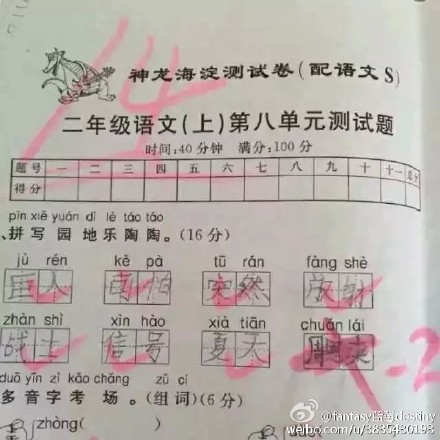 神龙海淀测试卷(配语文S)
二年级语文(上)第八单元测试题
时间:40分钟 满分:100分
题号 一 二 三 四 五 六 七 八 九 十 十一 总分
得分
pīn xiě yuán dì lè táo táo
、拼写园地乐陶陶。(16分)
jù rén kě pà tū rán fàng shè
巨人 可怕 突然 放射
zhàn shì xìn hào xià tiān chuán lái
战士 信号 夏天
-2
duō yīn zì kǎo chǎng zǔ cí
多音字考场。(组词)(6分)
zhòng( )
@fantasy蓝的destiny
weibo.com/u/3835430193